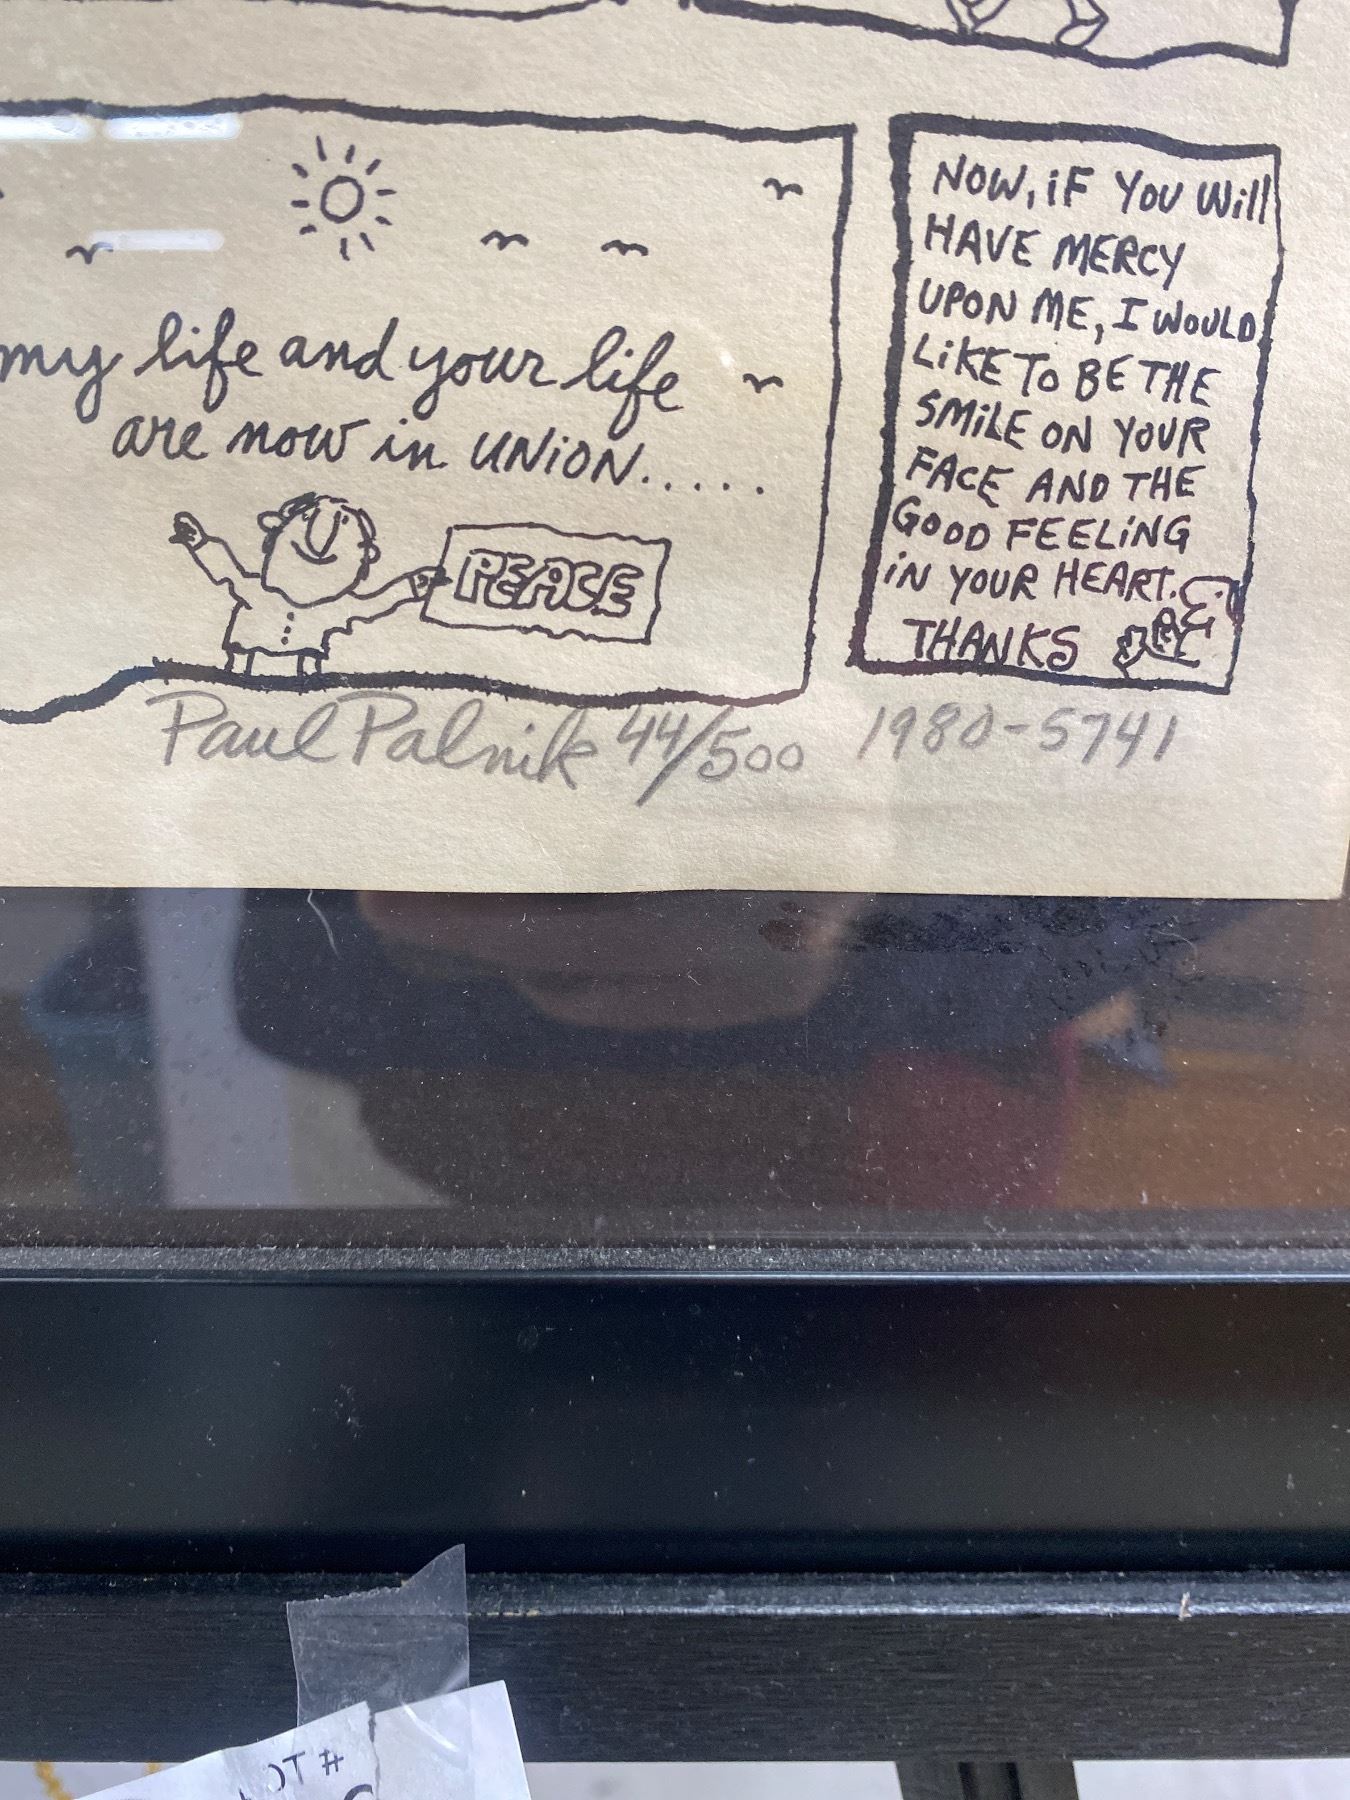 my life and your life
are now in UNION.....
PEACE
NOW, iF YOU Will
HAVE MERCY
UPON ME, I WOULD
LiKE TO BE THE
SMiLE ON YOUR
FACE AND THE
GOOD FEELiNG
iN YOUR HEART.
THANKS
Paul Palnik 44/500 1980-5741
OT #